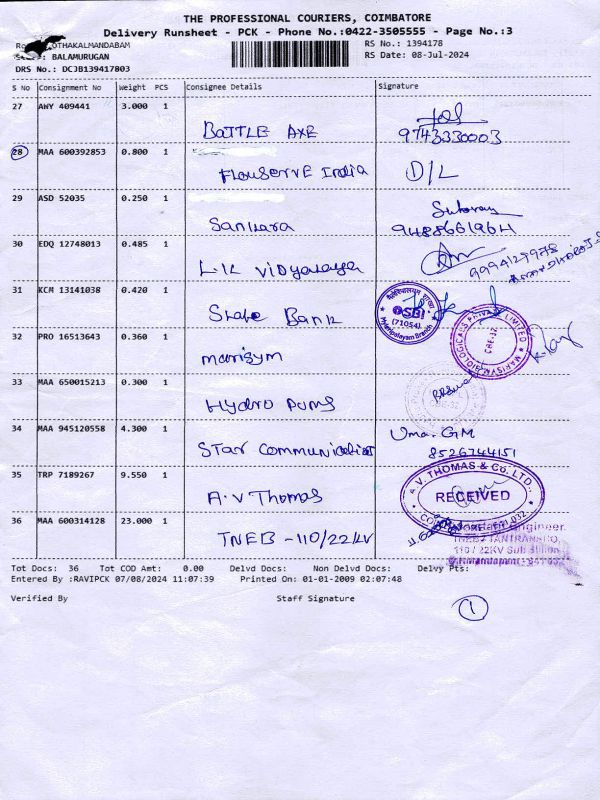 THE PROFESSIONAL COURIERS, COIMBATORE
Delivery Runsheet - PCK - Phone No.:0422-3505555 - Page No.:3
OTHAKALMANDABAM
RS No.: 1394178
: BALAMURUGAN
RS Date: 08-Jul-2024
DRS No.: DCJB139417803
S No Consignment No Weight PCS Consignee Details Signature
27 AHY 409441 3.000 1
BATTLE AXE 9743330003
28 MAA 600392853 0.800 1
Flouserve India D/L
29 ASD 52035 0.250 1
Sankara
30 EDQ 12748013 0.485 1
L.K Vidyalaya 9994129978
31 KCM 13141038 0.420 1
State Bank
SBI
(71054)
32 PRO 16513643 0.360 1
marisym
33 MAA 650015213 0.300 1
Hydro Pums
34 MAA 945120558 4.300 1
Star Communication Uma. GM
8526744151
35 TRP 7189267 9.550 1
A.V Thomas
A.V. THOMAS & CO. LTD.
RECEIVED
36 MAA 600314128 23.000 1
TNEB - 110/22KV
Engineer
110 / 22KV Sub Station
Tot Docs: 36 Tot COD Amt: 0.00 Delvd Docs: Non Delvd Docs: Delvy Pts:
Entered By :RAVIPCK 07/08/2024 11:07:39 Printed On: 01-01-2009 02:07:48
Verified By Staff Signature
1